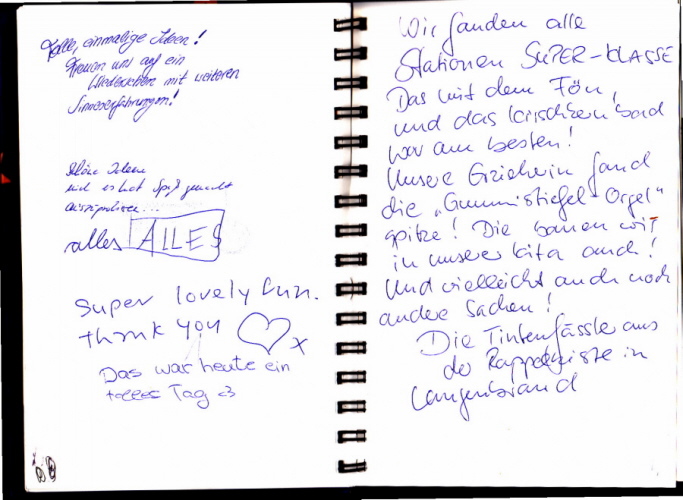 Tolle, einmalige Ideen!
Freuen uns auf ein
Wiedersehen mit weiteren
Sinneserfahrungen!
Schöne Ideen
und es hat Spaß gemacht
auszuprobieren...
alles ALLES
Super lovely fun.
thank you ♡ x
Das war heute ein
tolles Tag <3
Wir fanden alle
Stationen SUPER-KLASSE
Das mit dem Fön,
und das Kirschkernbad
war am besten!
Unsere Erzieherin fand
die „Gummistiefel-Orgel"
spitze! Die bauen wir
in unserer Kita auch!
Und vielleicht auch noch
andere Sachen!
Die Tintenfässler aus
der Rappelkiste in
Langenbrand